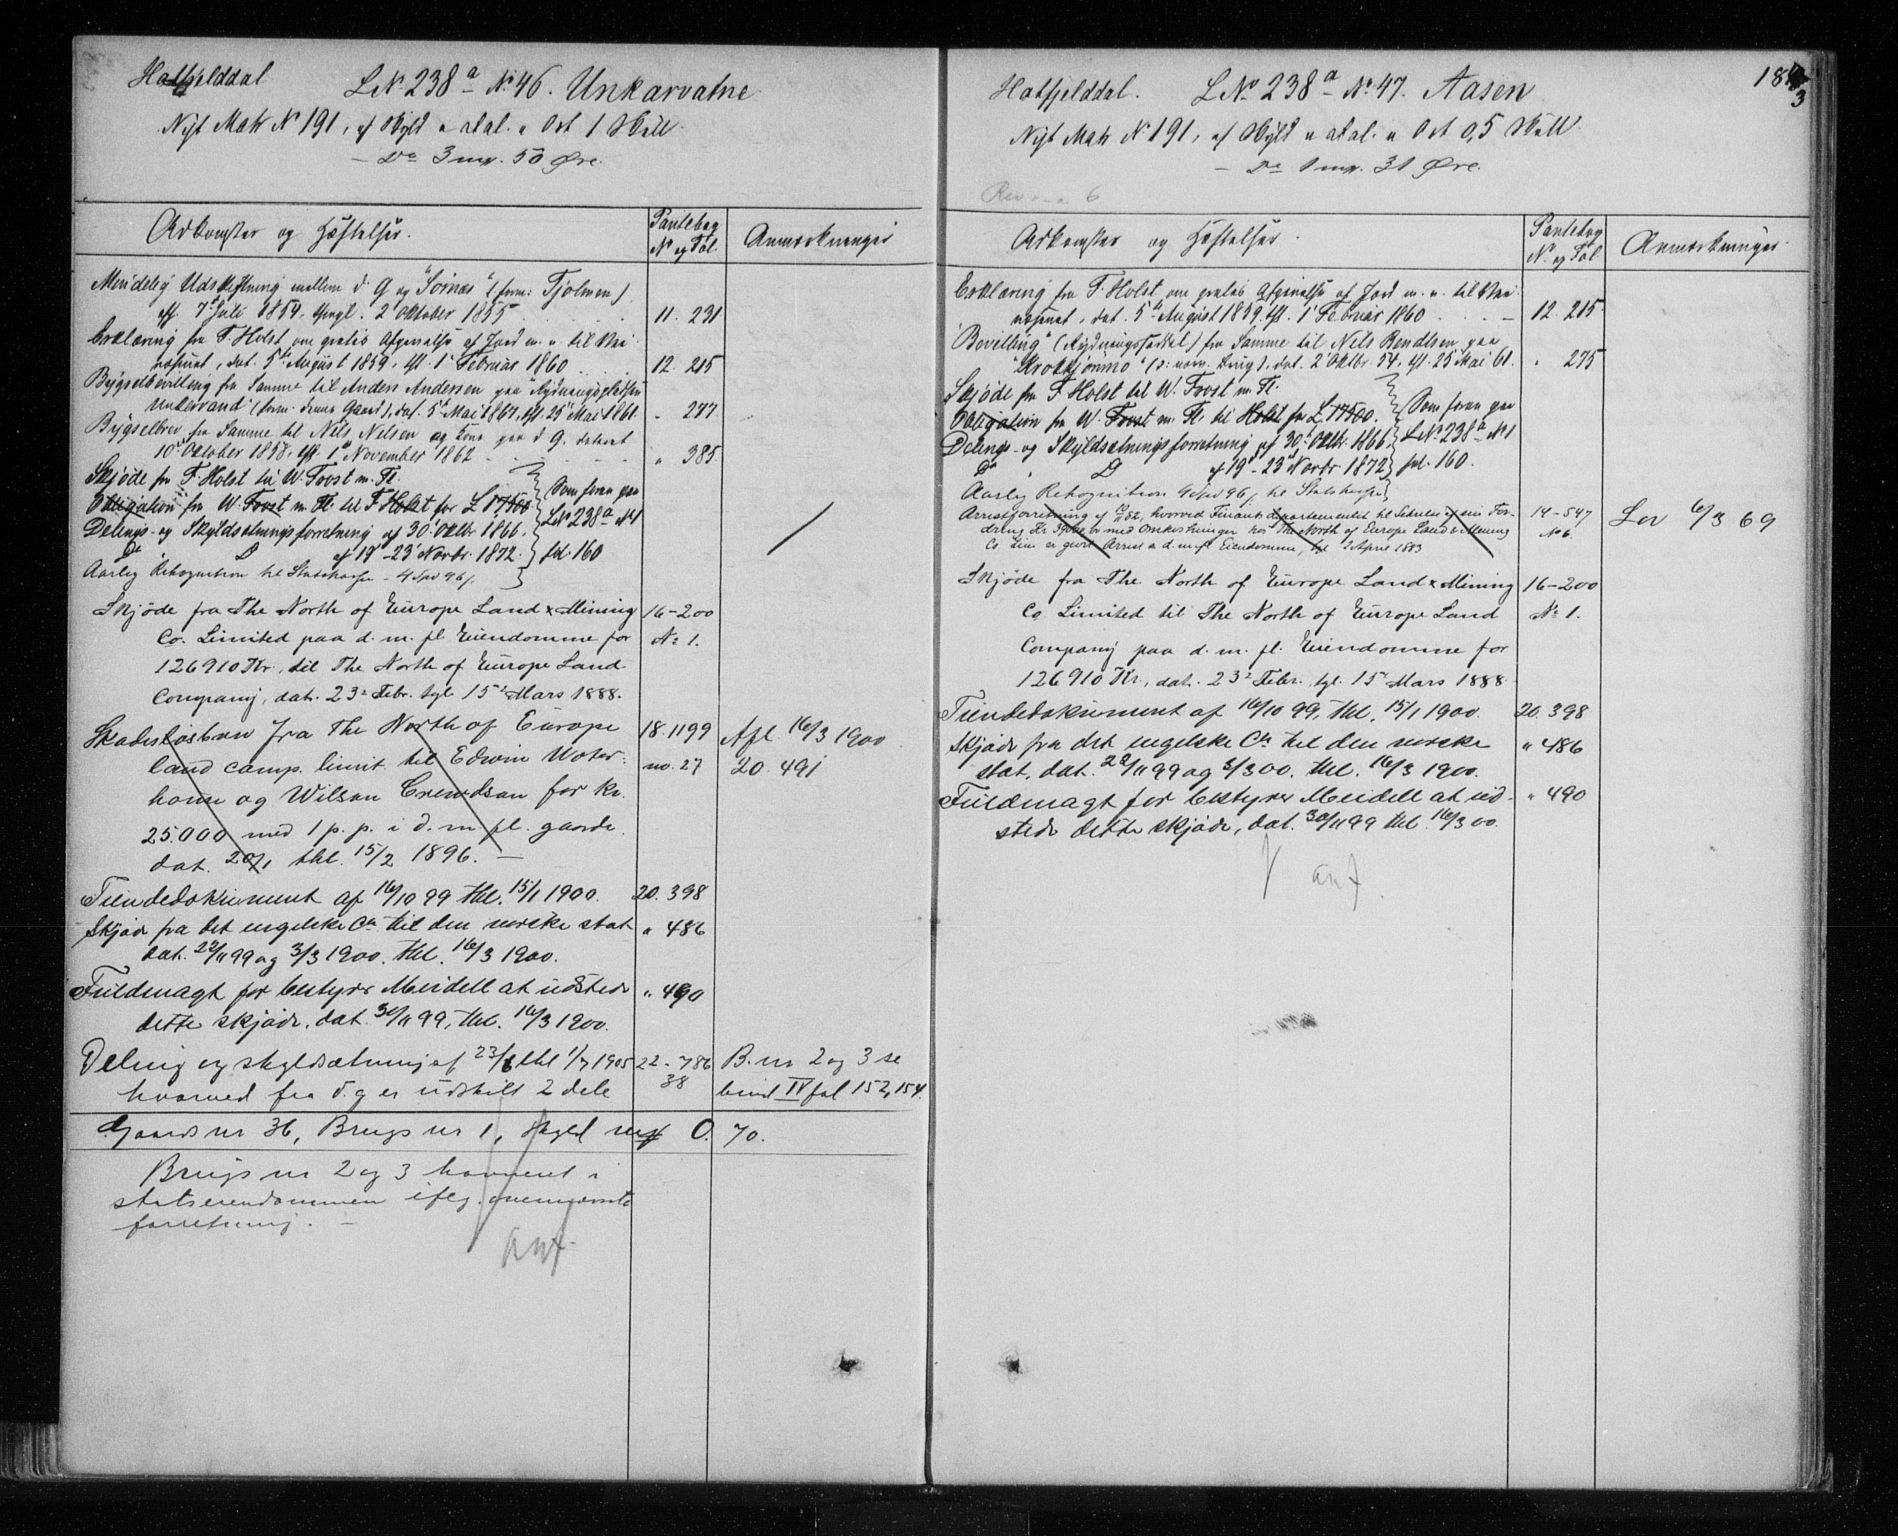 Hatfjelddal
L.№ 238ᵃ № 46. Unkarvatne
Nyt Matr № 191, af Skyld " " Ort 1 Skill.
— Do 3 mrk. 50 Øre.
Adkomster og Hæftelser.
Pantebog
№ og Fol.
Anmærkninger
Mindelig Udskiftning mellem d. G og "Sørnæs" (
aff. 7de Juli 1854, thngl. 2 Oktober 1855
11. 231
Erklæring fra F. Holst om gratis Afgivelse af Jord m. v. til
dat. 5te August 1859, tgl. 1 Februar 1860
12. 215
Bygselbevilling fra Samme til Anders Andersen paa "Rydningspladsen
Unkervand" ( denne Gaard), dat. 5 Mai 1861, tgl. 25 Mai 1861.
" 277
Bygselbrev fra Samme til Nils Nilsen og Kone paa d. G. dateret
10de Oktober 1858, tgl. 1ste November 1862
" 385
Skjøde fra F. Holst til W. Foost m. Fl.
Obligation fra W. Foost m. Fl. til F Holst for £ 17500
Delings- og Skyldsætningsforretning af 30. Oktbr. 1866.
Do D af 19 - 23 Novbr. 1872.
Som foran paa
L№ 238ᵃ №1
fol. 160
Aarlig Rekognition til Statskassen - 4 Spd 96 s.
Skjøde fra The North of Europe Land & Mining
16-200
Co. Limited paa d. m. fl. Eiendomme for
№ 1.
126910 Kr, til The North of Europe Land
Company, dat. 23de Febr. tgl. 15de Mars 1888.
Skadesløsbrev fra The North of Europe
18. 1199
Afl. 16/3 1900
land comp. limit. til Edwin Water-
no. 27
20. 491
house og Wilson Crewdson for kr.
25.000 med 1 p. p. i d. m fl. gaarde.
dat. 20/1 thl. 15/2 1896. —
Tiendedokument af 16/10 99 thl. 15/1 1900.
20. 398
Skjøde fra det engelske Co. til den norske stat
" 486
dat. 22/11 99 og 3/3 1900. thl. 16/3 1900.
Fuldmagt for bestyrer Meidell at udstede
" 490
dette skjøde, dat. 30/11 99, thl. 16/3 1900.
Deling og skyldsætning af 23/6 thl 1/7 1905
22-786
38
B.nr 2 og 3 se
hvorved fra d.g er udskilt 2 dele
bind IV fol 153, 154.
Gaards nr 36, Brugs nr 1, Skyld mrk 0. 70.
Brugs nr 2 og 3 i
statseiendommen ifølg. ovennævnte
forretning. —
anf.
183
Hatfjelddal.
L№ 238ᵃ № 47. Aasen
Nyt Matr № 191, af Skyld " " Ort 0,5 Skill
— Do 1 mrk. 31 Øre.
Adkomster og Hæftelser.
Pantebog
№ og Fol.
Anmærkninger
Erklæring fra F. Holst om gratis Afgivelse af Jord m. v. til
dat. 5te August 1859, tgl. 1 Februar 1860
12. 215
Bevilling (Rydningsseddel) fra Samme til Nils Rendtsen paa
"Krokkjønmo" ( Brug), dat. 2 Oktbr 54, tgl. 25 Mai 61.
" 275
Skjøde fra F. Holst til W. Foost m. Fl.
Obligation fra W. Foost m. Fl. til Holst for £ 17500.
Delings- og Skyldsætningsforretning af 30 Oktbr. 1866
Do D af 19 - 23 Novbr 1872
Som foran paa
L№ 238ᵃ №1
fol. 160.
Aarlig Rekognition 4 Spd 96 s. til Statskassen
Arrestforretning af 82, hvorved Finantsdepartementet til Sikkerhed for sin For-
14-547
dring Kr. med Omkostninger hos The North of Europe Land & Mining
№ 6
Co Lim er gjort Arrest i d. m. fl. Eiendomme, tgl 2 April 1883
Lov 6/3 69
Skjøde fra The North of Europe Land & Mining
16-200
Co Limited til The North of Europe Land
№ 1.
Company paa d. m. fl. Eiendomme for
126910 Kr, dat. 23de Febr. tgl. 15de Mars 1888.
Tiendedokument af 16/10 99, thl. 15/1 1900.
20. 398
Skjøde fra det engelske Co. til den norske
" 486
stat, dat. 22/11 99 og 3/3 00. thl. 16/3 1900.
Fuldmagt for bestyrer Meidell at ud-
" 490
stede dette skjøde, dat. 30/11 99 thl. 16/3 00.
anf.